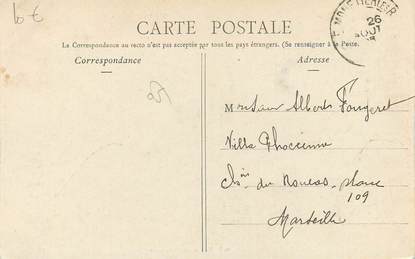 10 €
CARTE POSTALE
La Correspondance au recto n'est pas acceptée par tous les pays étrangers. (Se renseigner à la Poste.)
Correspondance
Adresse
26
AOUT
Monsieur Albert Fougeret
Villa Phocéenne
Ch.in du Roucas-blanc
109
Marseille